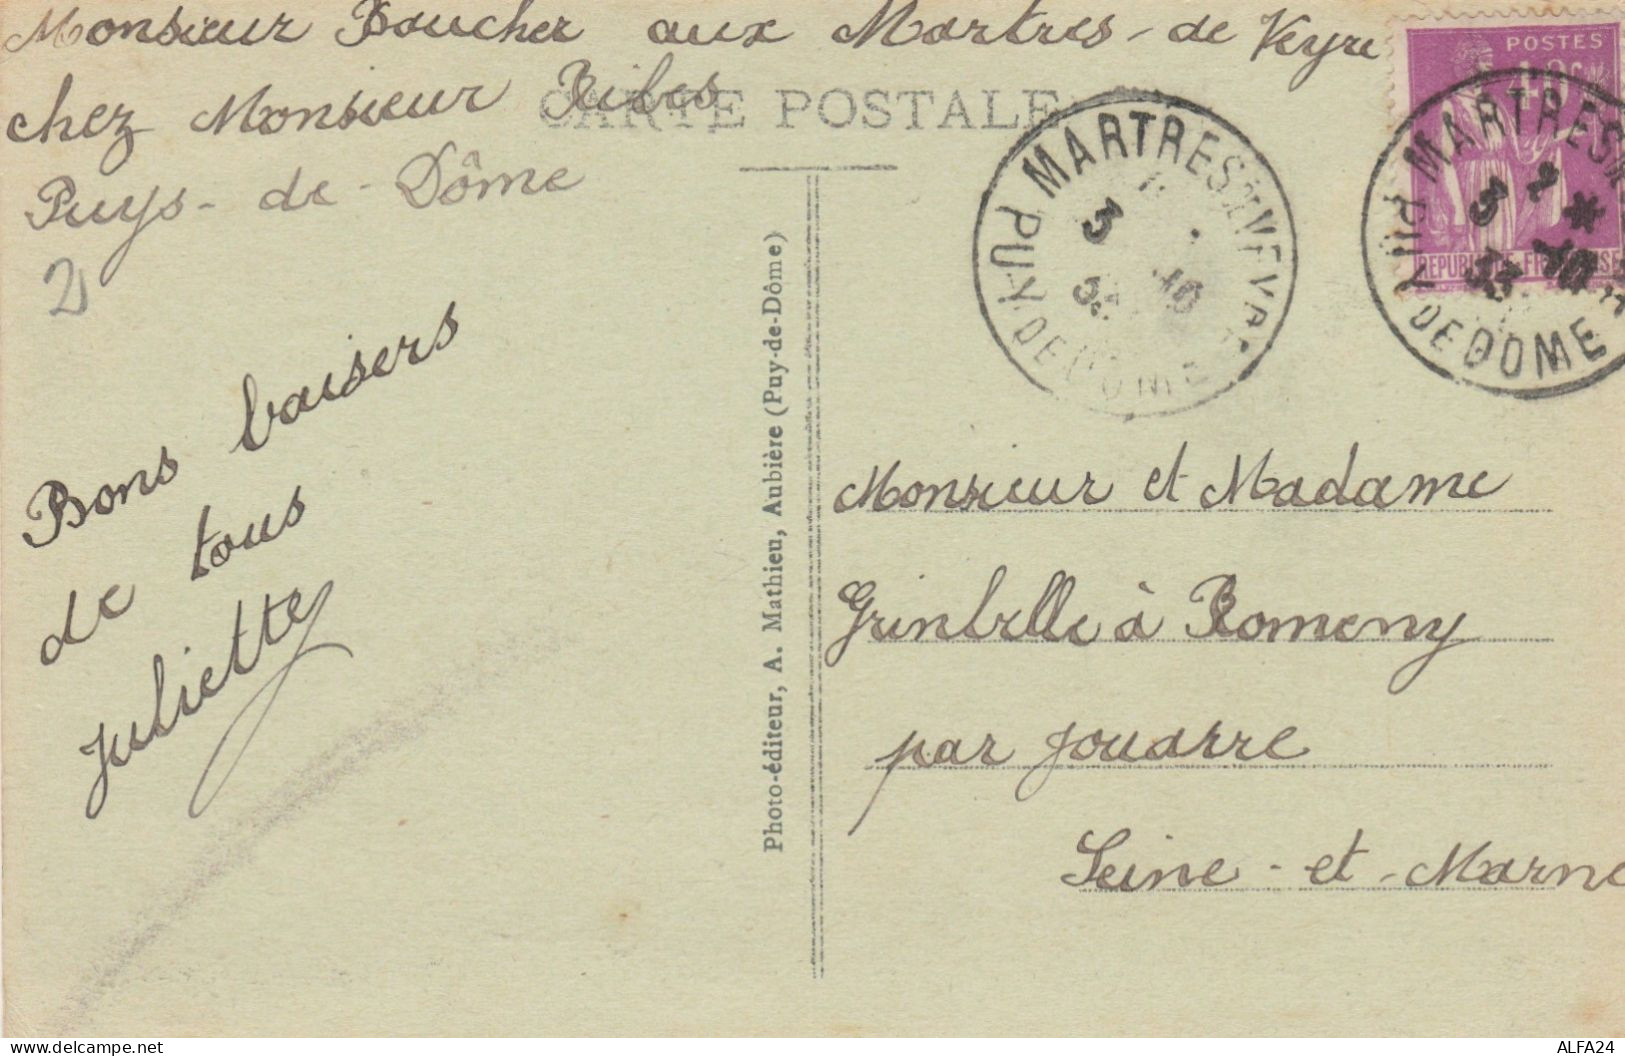 Monsieur Boucher aux Martres-de Veyre
chez Monsieur Ribes
Puys-de-Dôme
CARTE POSTALE
2
Bons baisers
de tous
Juliette
Photo-éditeur, A. Mathieu, Aubière (Puy-de-Dôme)
POSTES
MARTRES
3
10
PUY DE DOME
MARTRES
3 2 *
33 10
PUY DE DOME
Monsieur et Madame
Grinbelle à Romeny
par Jouarre
Seine-et-Marne
ALFA24